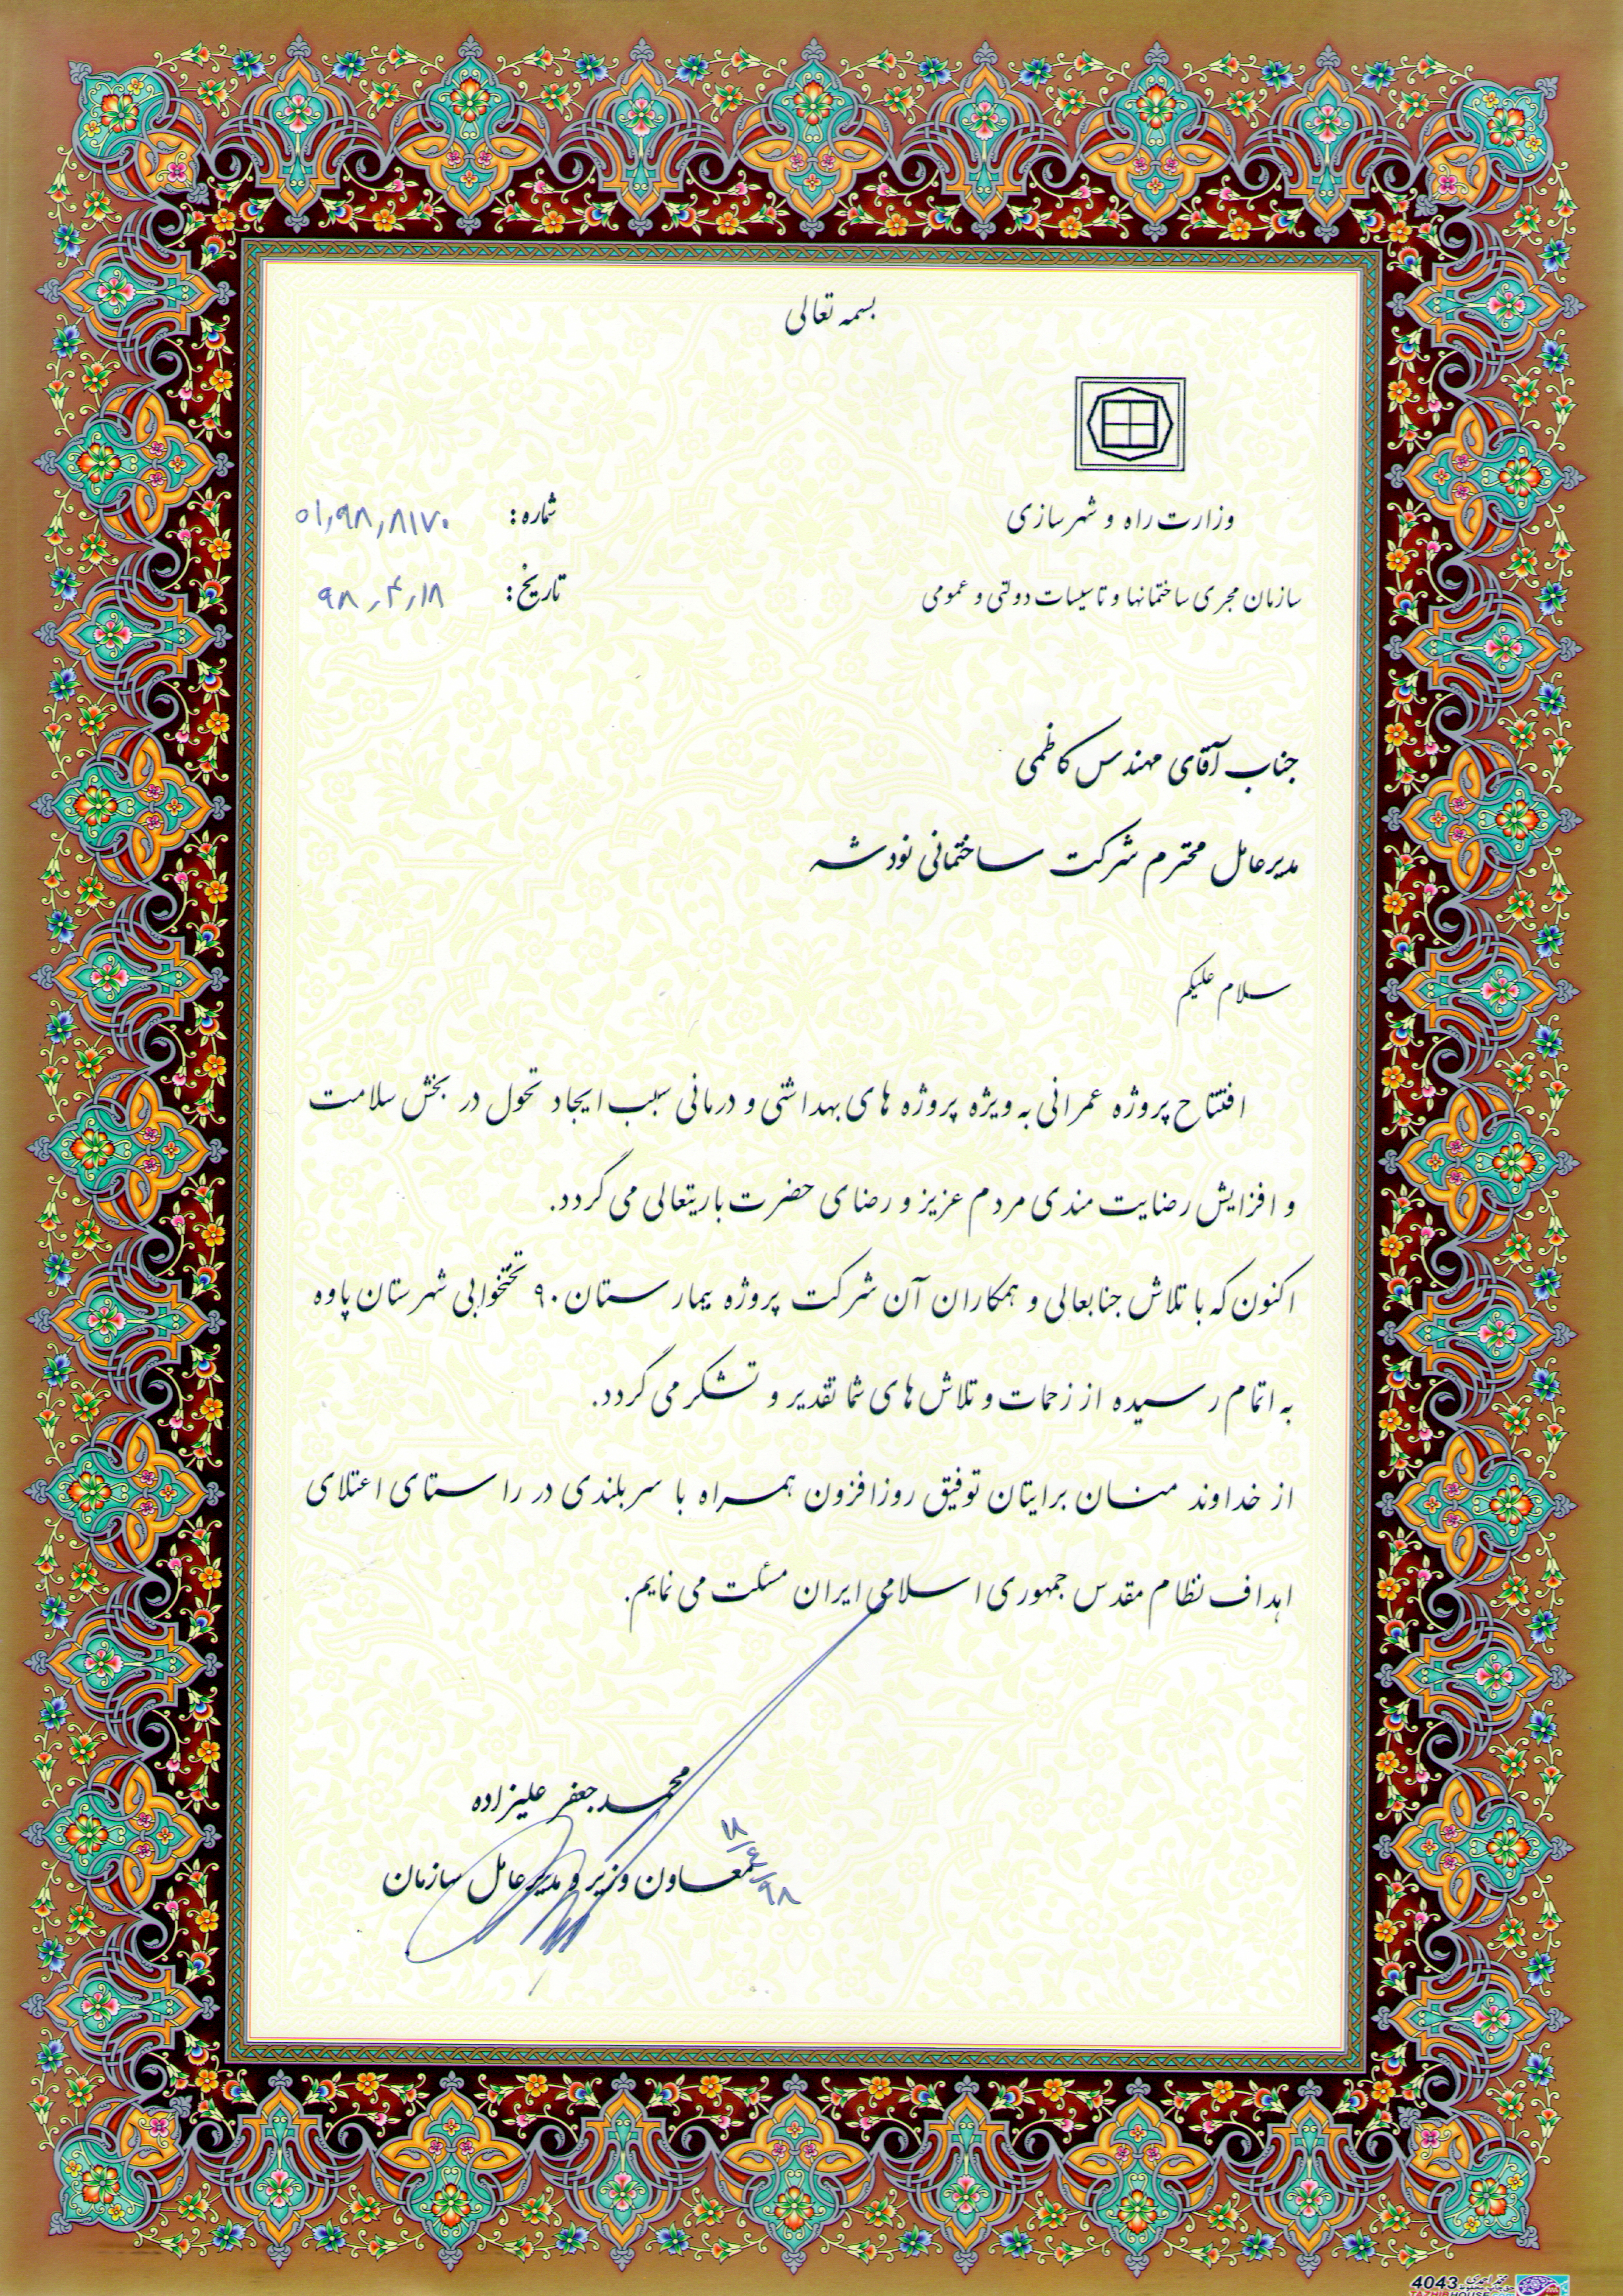 بسمه تعالی
وزارت راه و شهرسازی
شماره: ۰۱٫۹۸٫۸۱۷۰
سازمان مجری ساختمانها و تاسیسات دولتی و عمومی
تاریخ: ۹۸٫۴٫۱۸
جناب آقای مهندس کاظمی
مدیرعامل محترم شرکت ساختمانی نودشه
سلام علیکم
افتتاح پروژه عمرانی به ویژه پروژه های بهداشتی و درمانی سبب ایجاد تحول در بخش سلامت
و افزایش رضایت مندی مردم عزیز و رضای حضرت باریتعالی می گردد.
اکنون که با تلاش جنابعالی و همکاران آن شرکت پروژه بیمارستان ۹۰ تختخوابی شهرستان پاوه
به اتمام رسیده از زحمات و تلاش های شما تقدیر و تشکر می گردد.
از خداوند منان برایتان توفیق روزافزون همراه با سربلندی در راستای اعتلای
اهداف نظام مقدس جمهوری اسلامی ایران مسئلت می نمایم.
محمدجعفر علیزاده
معاون وزیر و مدیرعامل سازمان
4043
TAZHIB HOUSE